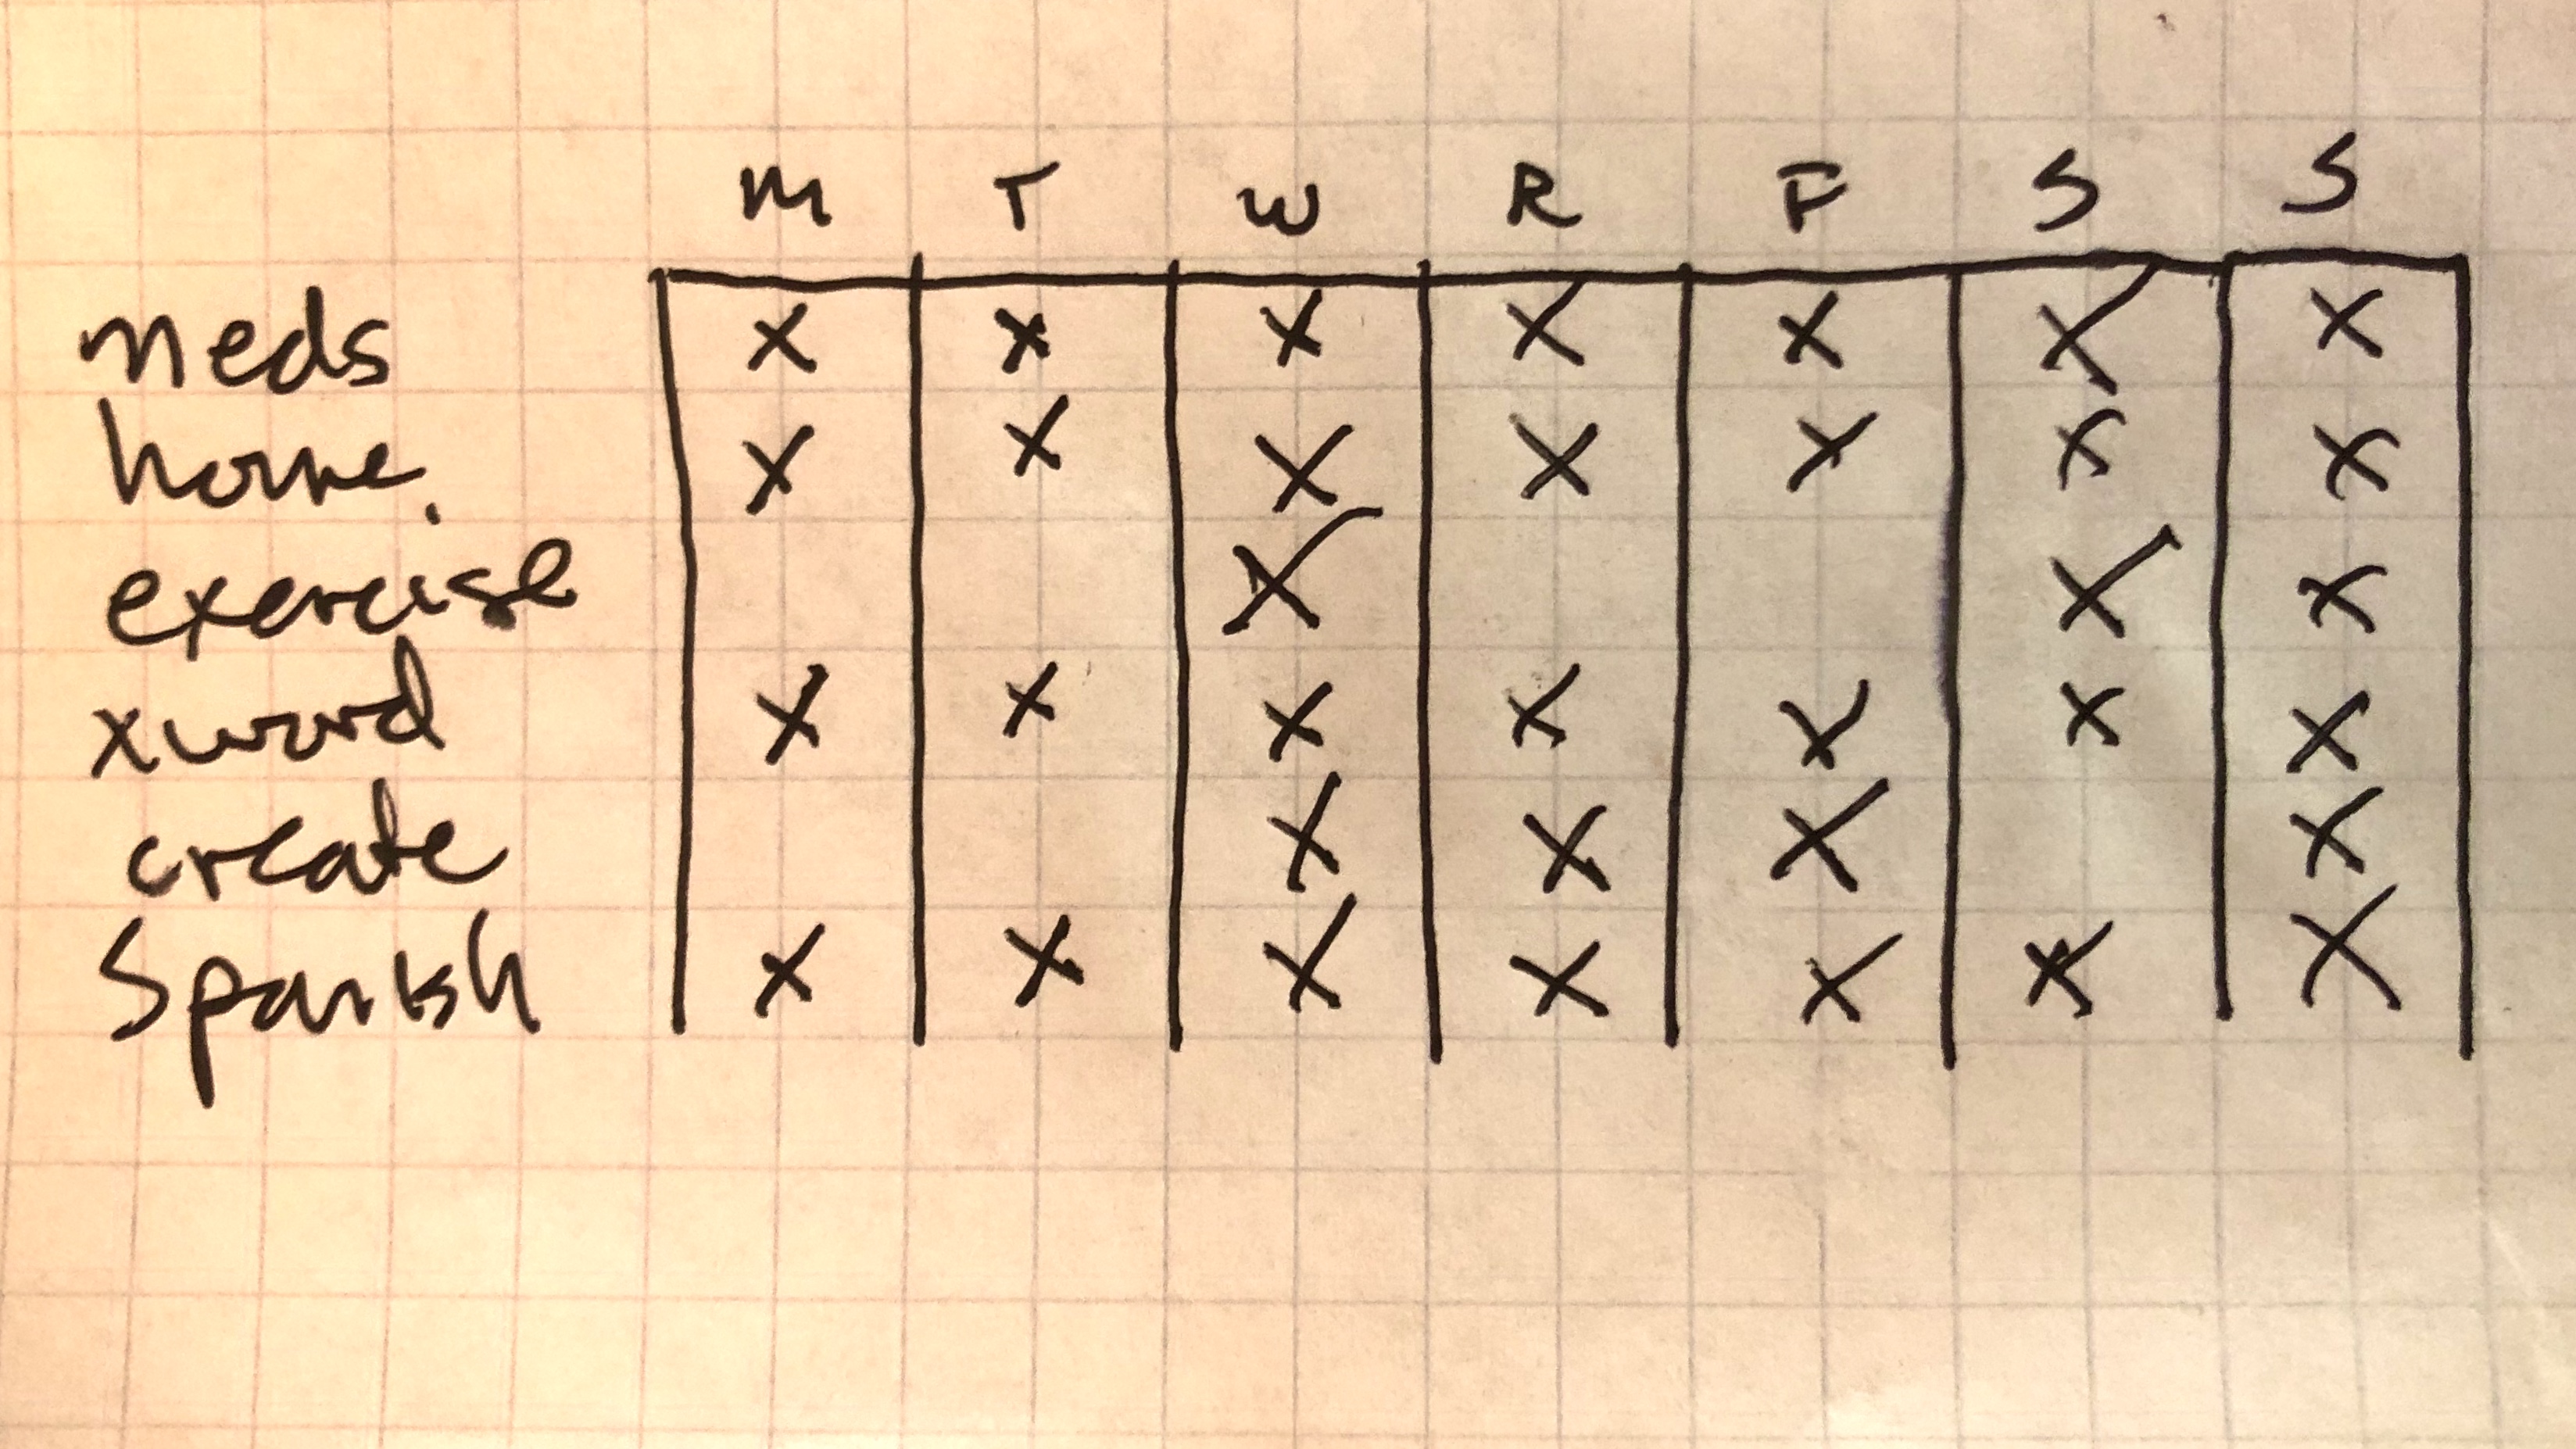 M T W R F S S
meds X X X X X X X
home. X X X X X X X
exercise X X X
xword X X X X X X X
create X X X X
Spanish X X X X X X X